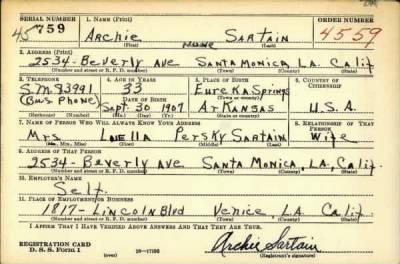 SERIAL NUMBER 1. NAME (Print) ORDER NUMBER
45 759 Archie none Sartain 4559
(First) (Middle) (Last)
2. ADDRESS (Print)
2534 - Beverly Ave Santa Monica, LA. Calif
(Number and street or R. F. D. number) (Town) (County) (State)
3. TELEPHONE 4. AGE IN YEARS 5. PLACE OF BIRTH 6. COUNTRY OF CITIZENSHIP
S.M. 73991 33 Eureka Springs
(Bus Phone) DATE OF BIRTH (Town or county)
Sept. 30 1907 Arkansas U.S.A.
(Exchange) (Number) (Mo.) (Day) (Yr.) (State or country)
7. NAME OF PERSON WHO WILL ALWAYS KNOW YOUR ADDRESS 8. RELATIONSHIP OF THAT PERSON
Mrs Luella Persky Sartain Wife
(Mr., Mrs., Miss) (First) (Middle) (Last)
9. ADDRESS OF THAT PERSON
2534 - Beverly Ave Santa Monica, LA, Calif.
(Number and street or R. F. D. number) (Town) (County) (State)
10. EMPLOYER'S NAME
Self.
11. PLACE OF EMPLOYMENT OR BUSINESS
1817 - Lincoln Blvd Venice LA Calif
(Number and street or R. F. D. number) (Town) (County) (State)
I AFFIRM THAT I HAVE VERIFIED ABOVE ANSWERS AND THAT THEY ARE TRUE.
REGISTRATION CARD
D. S. S. FORM 1 (over) Archie Sartain
(Registrant's signature)